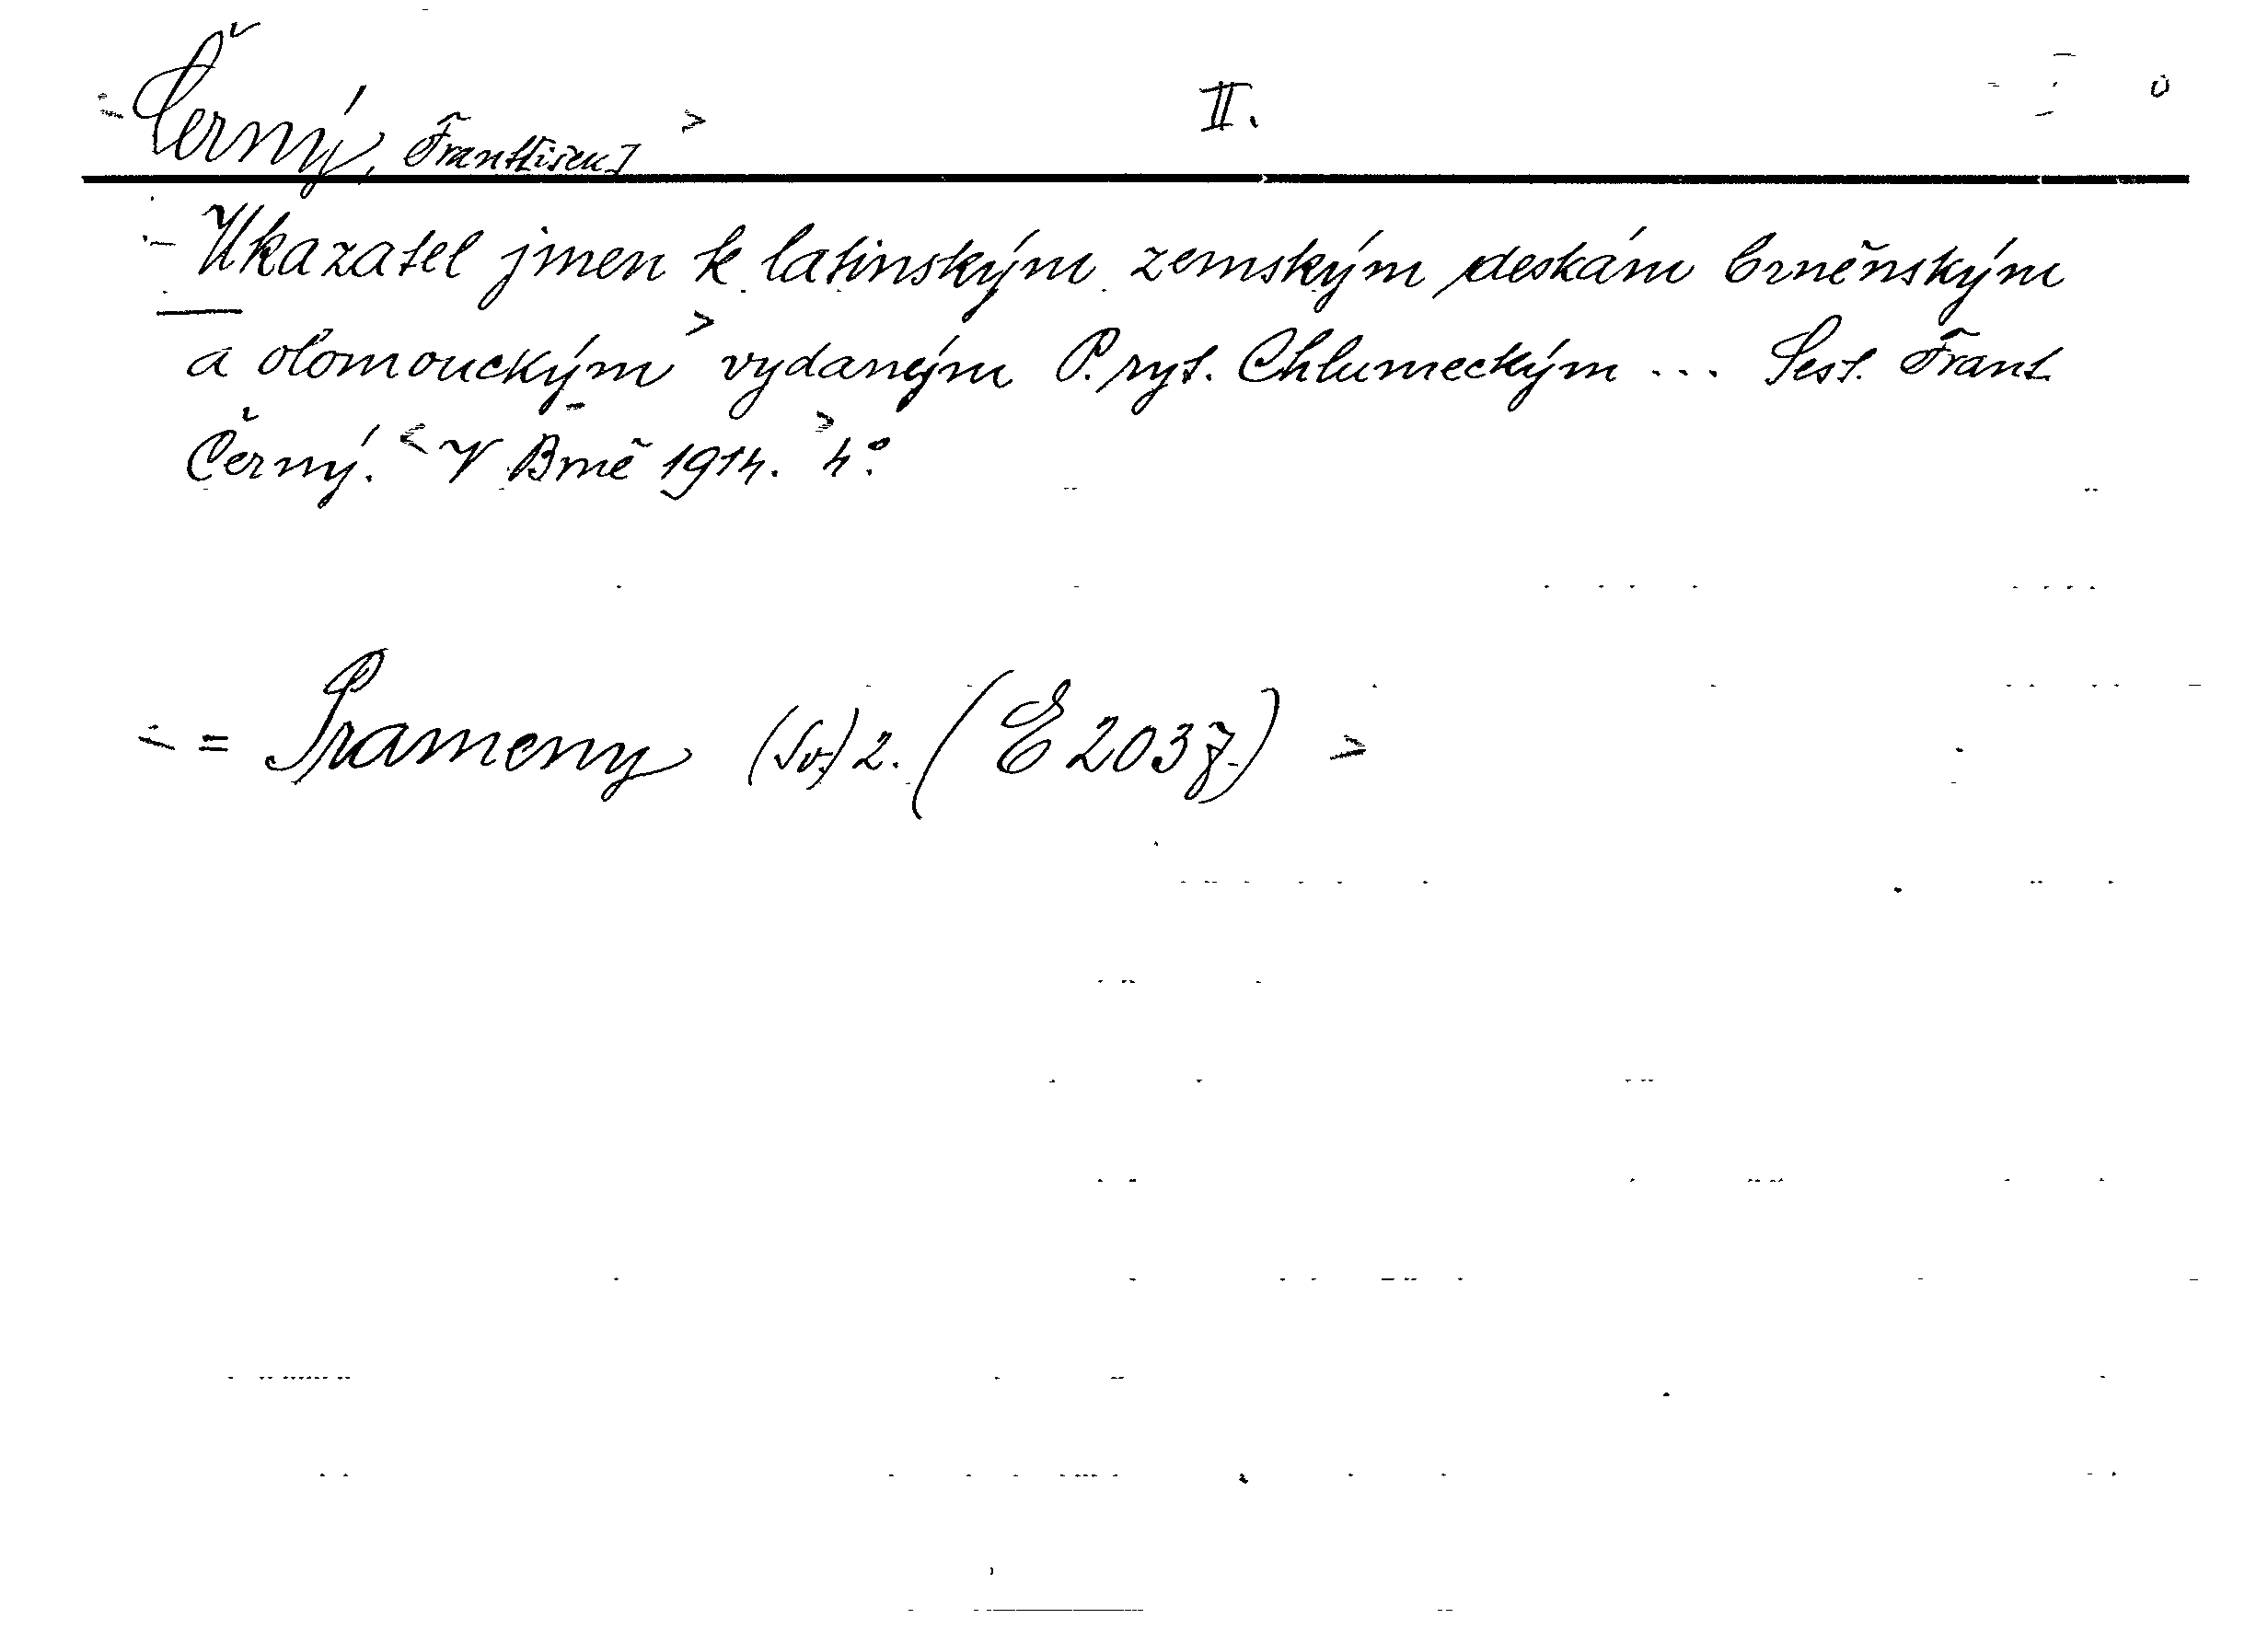 Černý, Frant[išek] II.
Ukazatel jmen k latinským zemským deskám brněnským
a olomouckým vydaným P. ryt. Chlumeckým ... Sest. Frant.
Černý. V Brně 1914. 4°.
= Prameny (Sv.) 2. (E 2037)